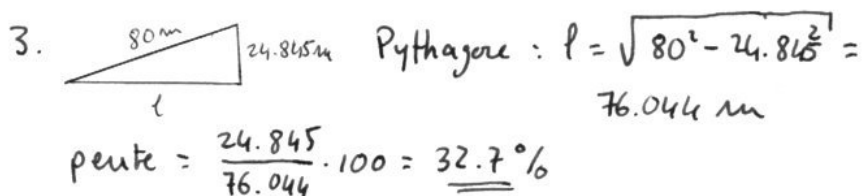 3. 80 m 24.845 m Pythagore : l = √80² - 24.845² =
l 76.044 m
pente = 24.845 / 76.044 · 100 = 32.7 %